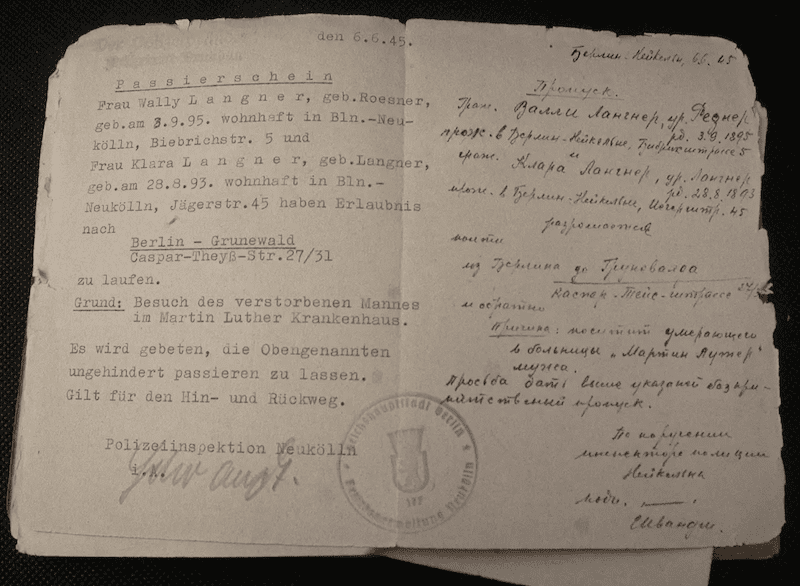 den 6.6.45.
Passierschein
Frau Wally Langner, geb.Roesner,
geb.am 3.9.95. wohnhaft in Bln.-Neu-
kölln, Biebrichstr. 5 und
Frau Klara Langner, geb.Langner,
geb.am 28.8.93. wohnhaft in Bln.-
Neukölln, Jägerstr.45 haben Erlaubnis
nach
Berlin - Grunewald
Caspar-Theyß-Str.27/31
zu laufen.
Grund: Besuch des verstorbenen Mannes
im Martin Luther Krankenhaus.
Es wird gebeten, die Obengenannten
ungehindert passieren zu lassen.
Gilt für den Hin- und Rückweg.
Polizeiinspektion Neukölln
i.A.
Reichshauptstadt Berlin
Bezirksverwaltung Neukölln
177
Берлин-Нейкельн, 6.6. 45
Пропуск.
Граж. Валли Лангнер, ур. Резнер
рд. 3.9.1895
прож. в Берлин-Нейкельне, 5
и
граж. Клара Лангнер, ур. Лангнер
рд. 28.8.1893
прож. в Берлин-Нейкельне, 45
разрешается
из Берлина до Груневальда
Каспер-Тейс-штрассе 27/
и обратно
Причина: посетит умерающего
в больницы „Мартин
мужа.
Просьба дать выше указаной безпри-
пятственный пропуск.
По поручении
инспекторе полиции
Нейкельна